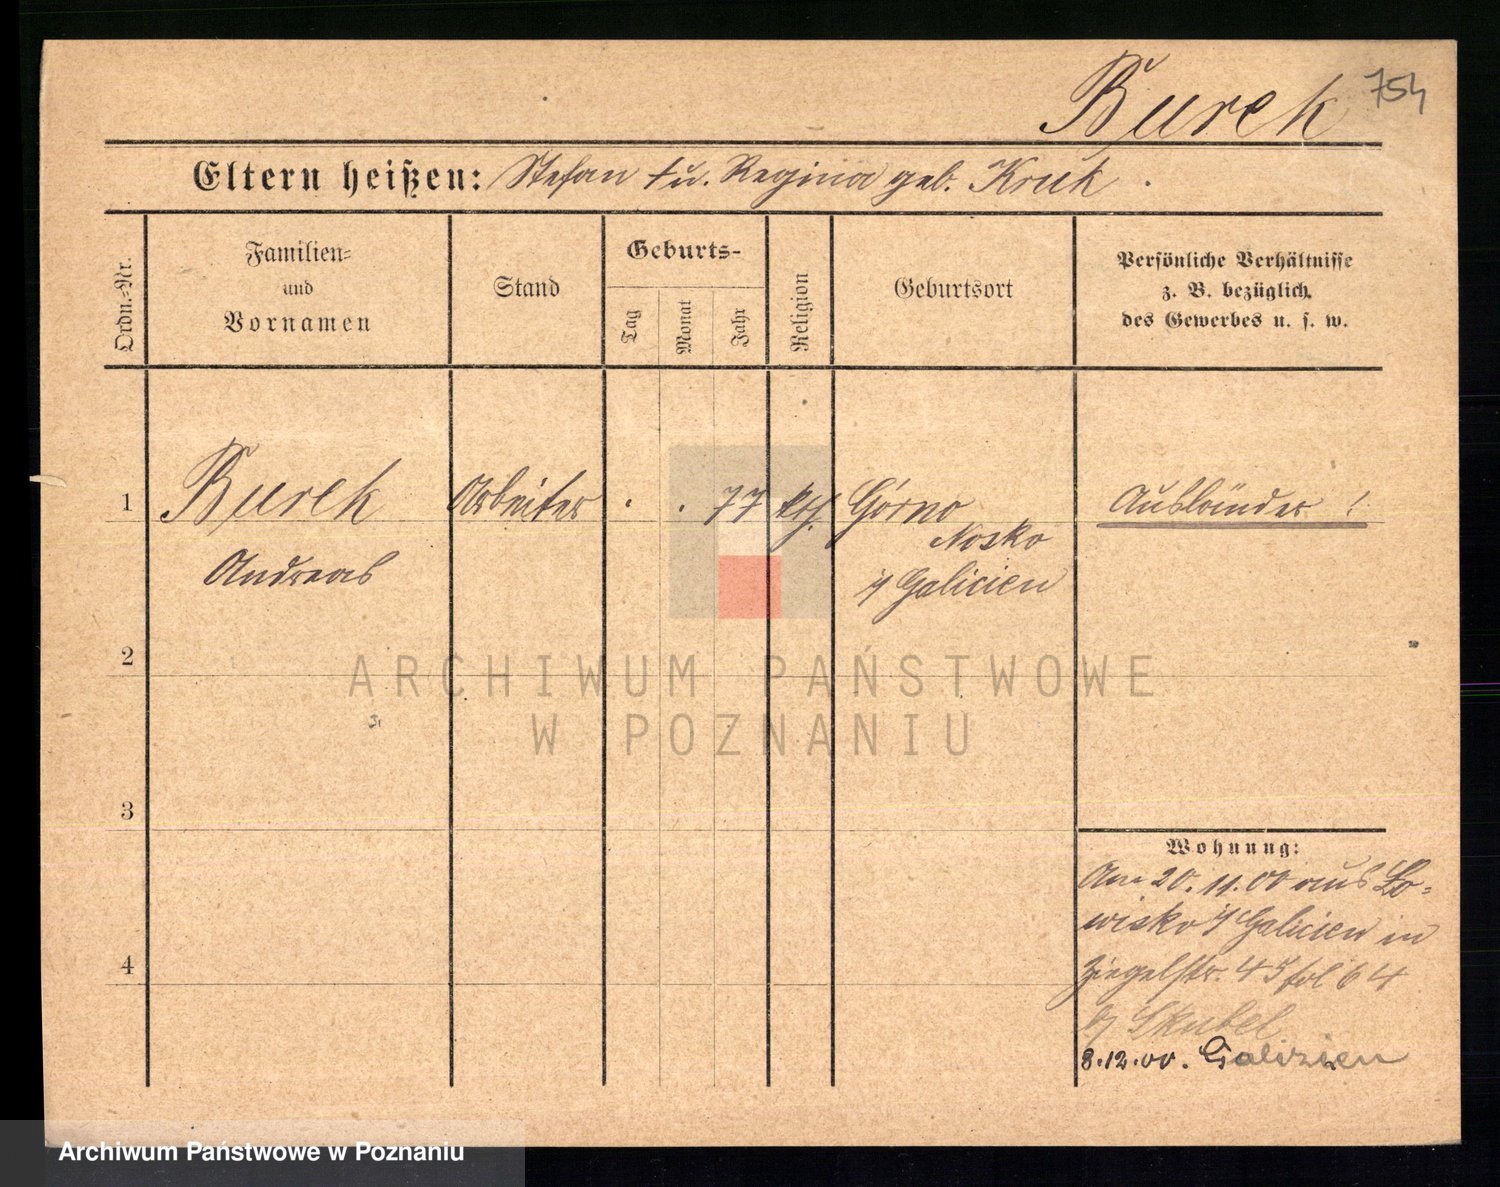 Burek 754
Eltern heißen: Stefan † u. Regina geb. Kruk.
Ordn.-Nr.
Familien-
und
Vornamen
Stand
Geburts-
Tag
Monat
Jahr
Religion
Geburtsort
Persönliche Verhältnisse
z. B. bezüglich
des Gewerbes u. s. w.
1 Burek Arbeiter . . 77 kth. Górno Ausländer !
Nosko
Andreas
i/ Galicien
2
ARCHIWUM PAŃSTWOWE
W POZNANIU
3
Wohnung:
Am 20.11.00 aus Lo-
wisko i/ Galicien in
4
Ziegelstr. 45 fol 64
b/ Skubel
8.12.00. Galizien
Archiwum Państwowe w Poznaniu